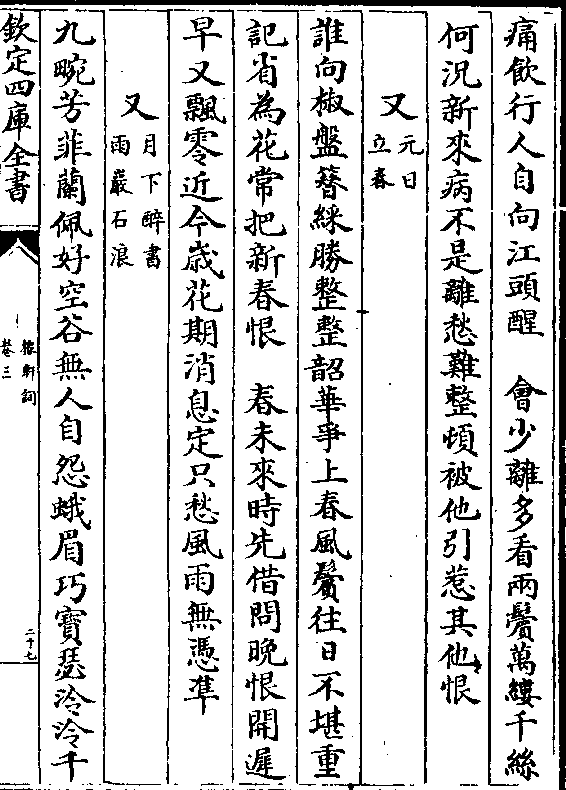 痛飲行人自向江頭醒　會少離多看兩鬢萬縷千絲
何況新來病不是離愁難整頓被他引惹其他恨
又元日立春
誰向椒盤簪綵勝整整韶華爭上春風鬢往日不堪重
記省為花常把新春恨　春未來時先借問晚恨開遲
早又飄零近今歳花期消息定只愁風雨無憑準
又月下醉書雨巖石浪
九畹芳菲蘭佩好空谷無人自怨蛾眉巧寶瑟泠泠千
欽定四庫全書
稼軒詞
卷三
二十七